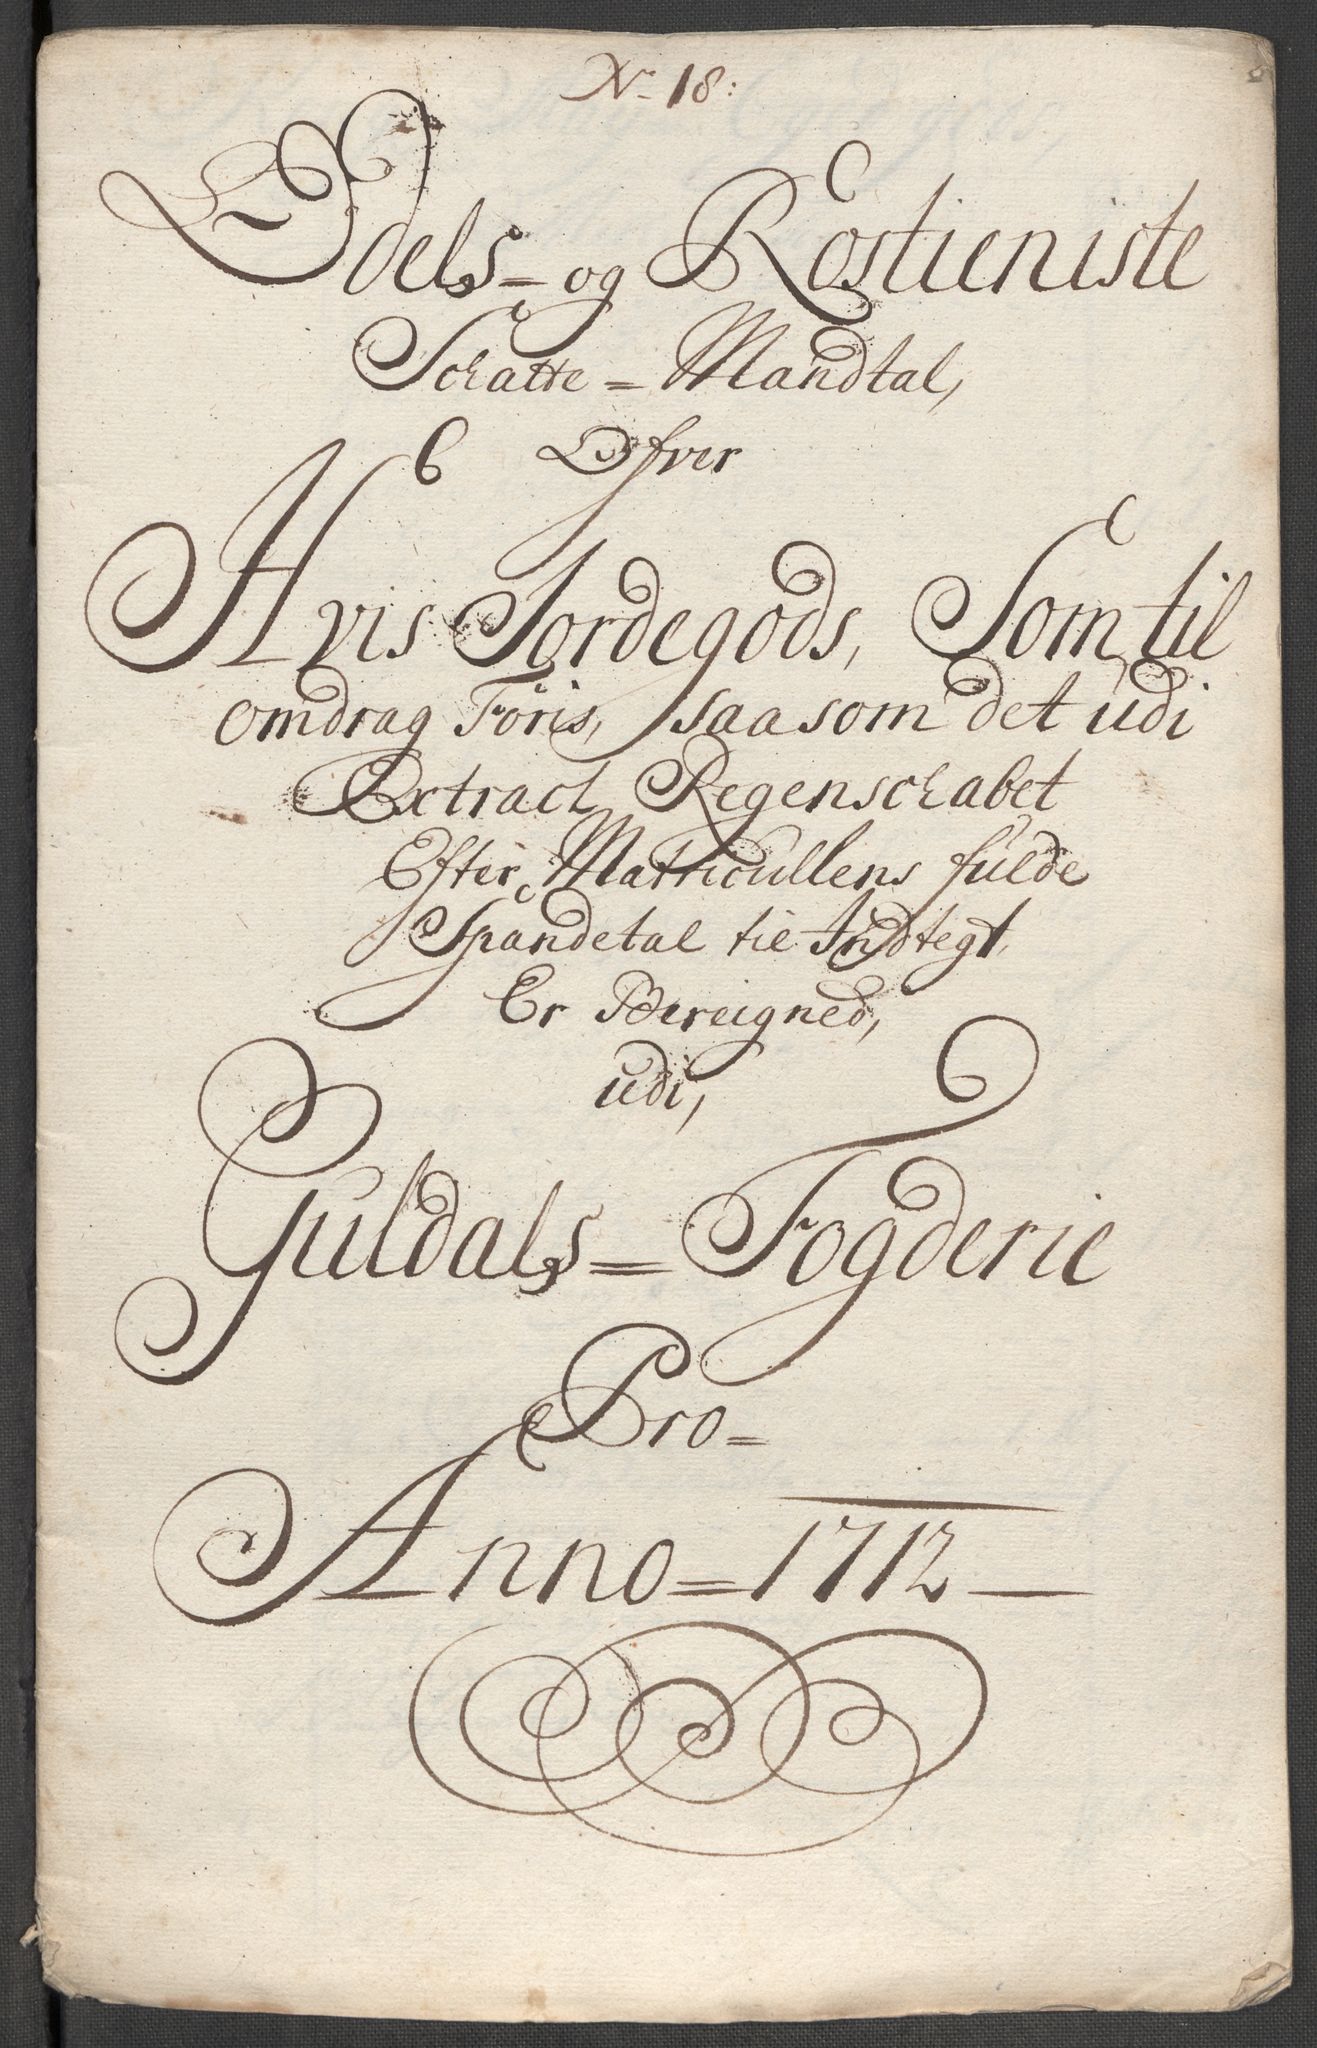 No 18:
Odels- og Rostieniste
Schatte = Mandtal,
Ofver
Hvis Jordegods, Som til
omdrag Föris, saasom det udi
Extract Regenschabet
Efter Matricullens fulde
Spandetal til Indtegt,
Er Bereigned,
udi,
Guldals = Fogderie
Pro =
Anno = 1712